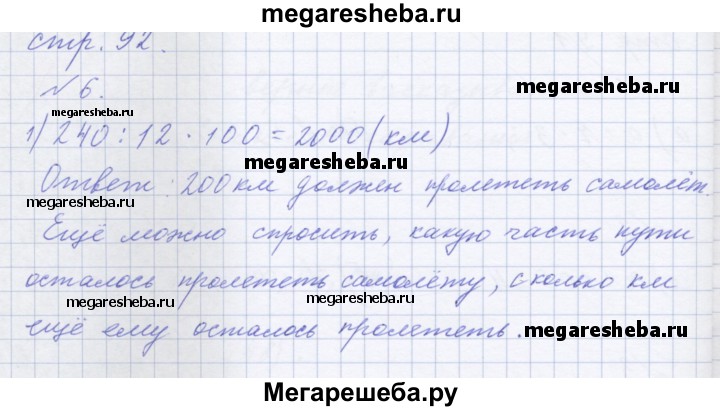 megaresheba.ru
стр. 92.
№ 6.
megaresheba.ru
megaresheba.ru
1) 240 : 12 · 100 = 2000 (км)
megaresheba.ru
Ответ: 200 км должен пролететь самолёт.
megaresheba.ru
Ещё можно спросить, какую часть пути
осталось пролететь самолёту, сколько км
megaresheba.ru
megaresheba.ru
ещё ему осталось пролететь.
megaresheba.ru
Мегарешеба.ру